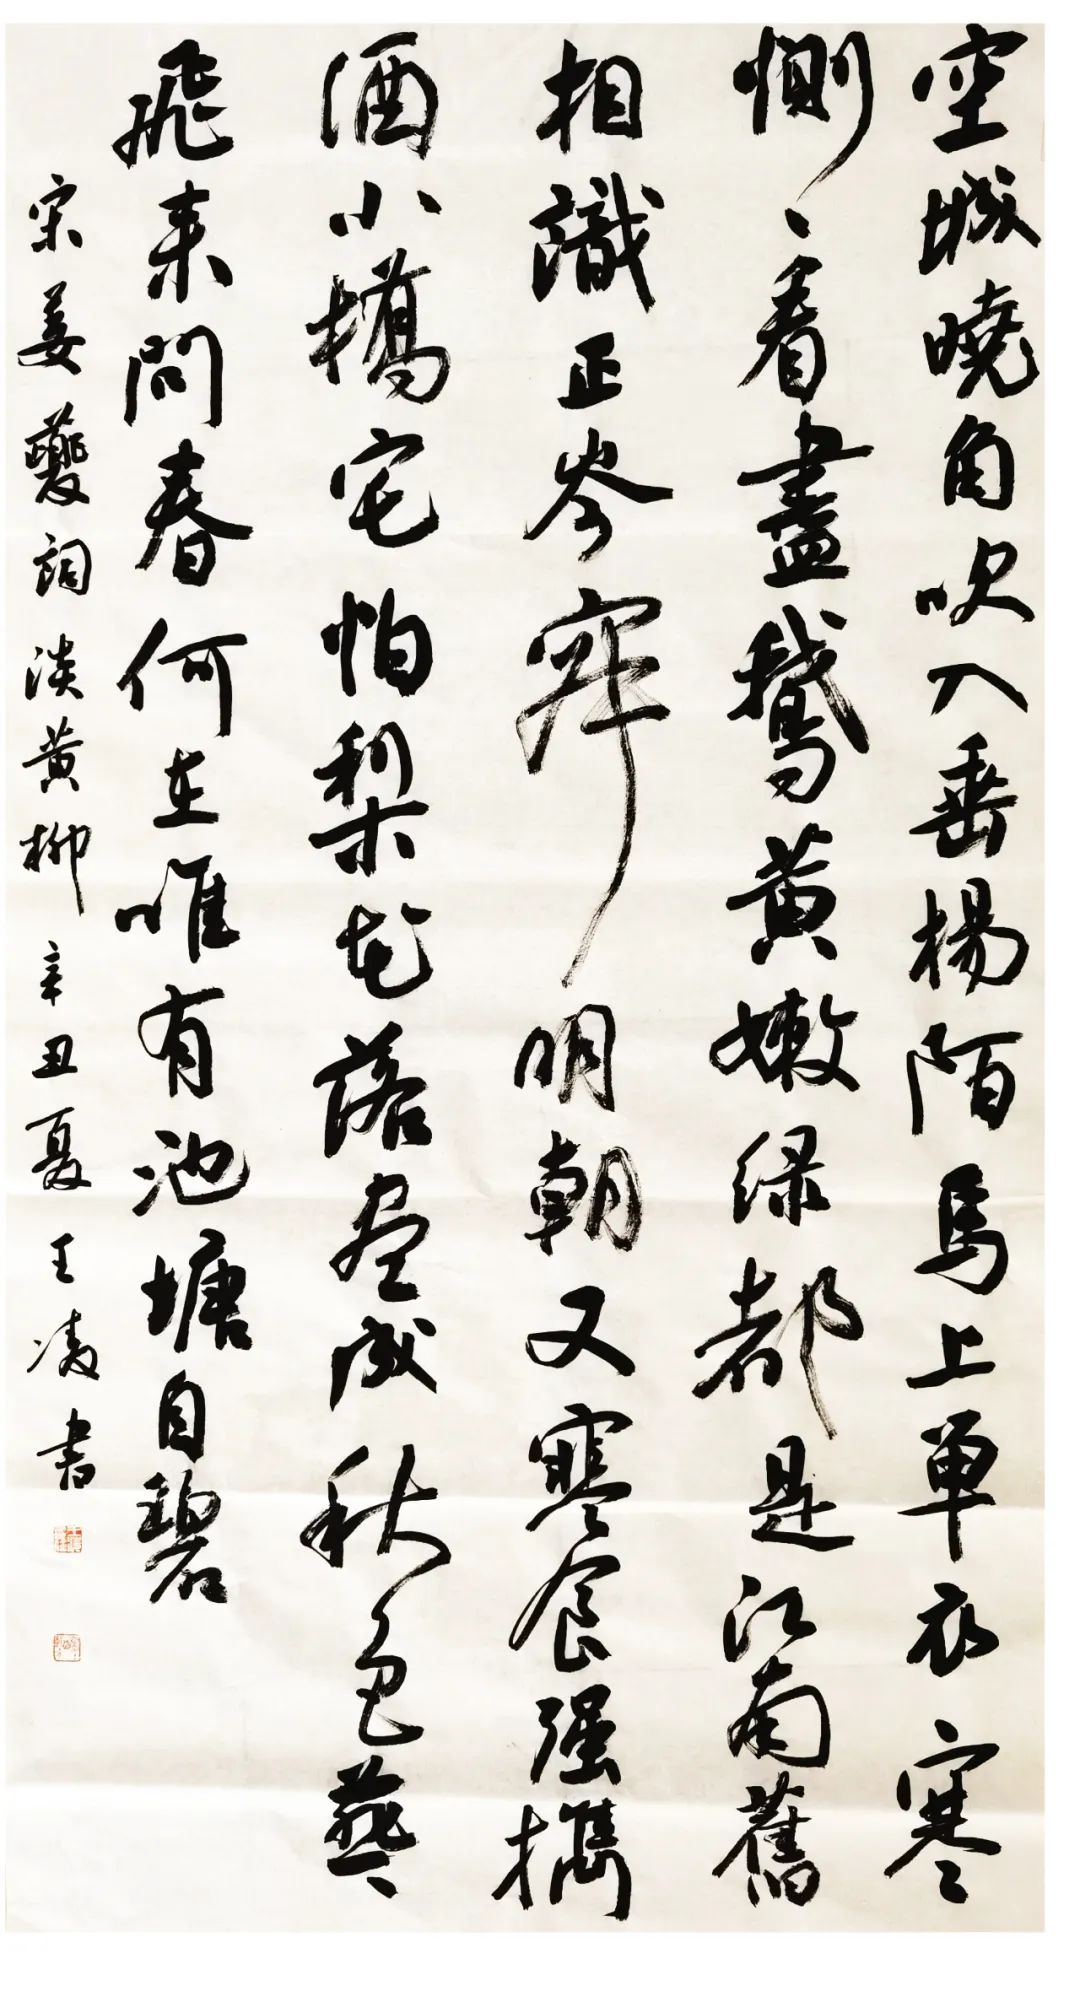 空城曉角吹入垂楊陌馬上單衣寒
惻〻看盡鵝黃嫩綠都是江南舊
相識正岑寂明朝又寒食强攜
酒小橋宅怕梨花落盡成秋色燕〻
飛來問春何在唯有池塘自碧
宋姜夔詞淡黃柳辛丑夏王凌書